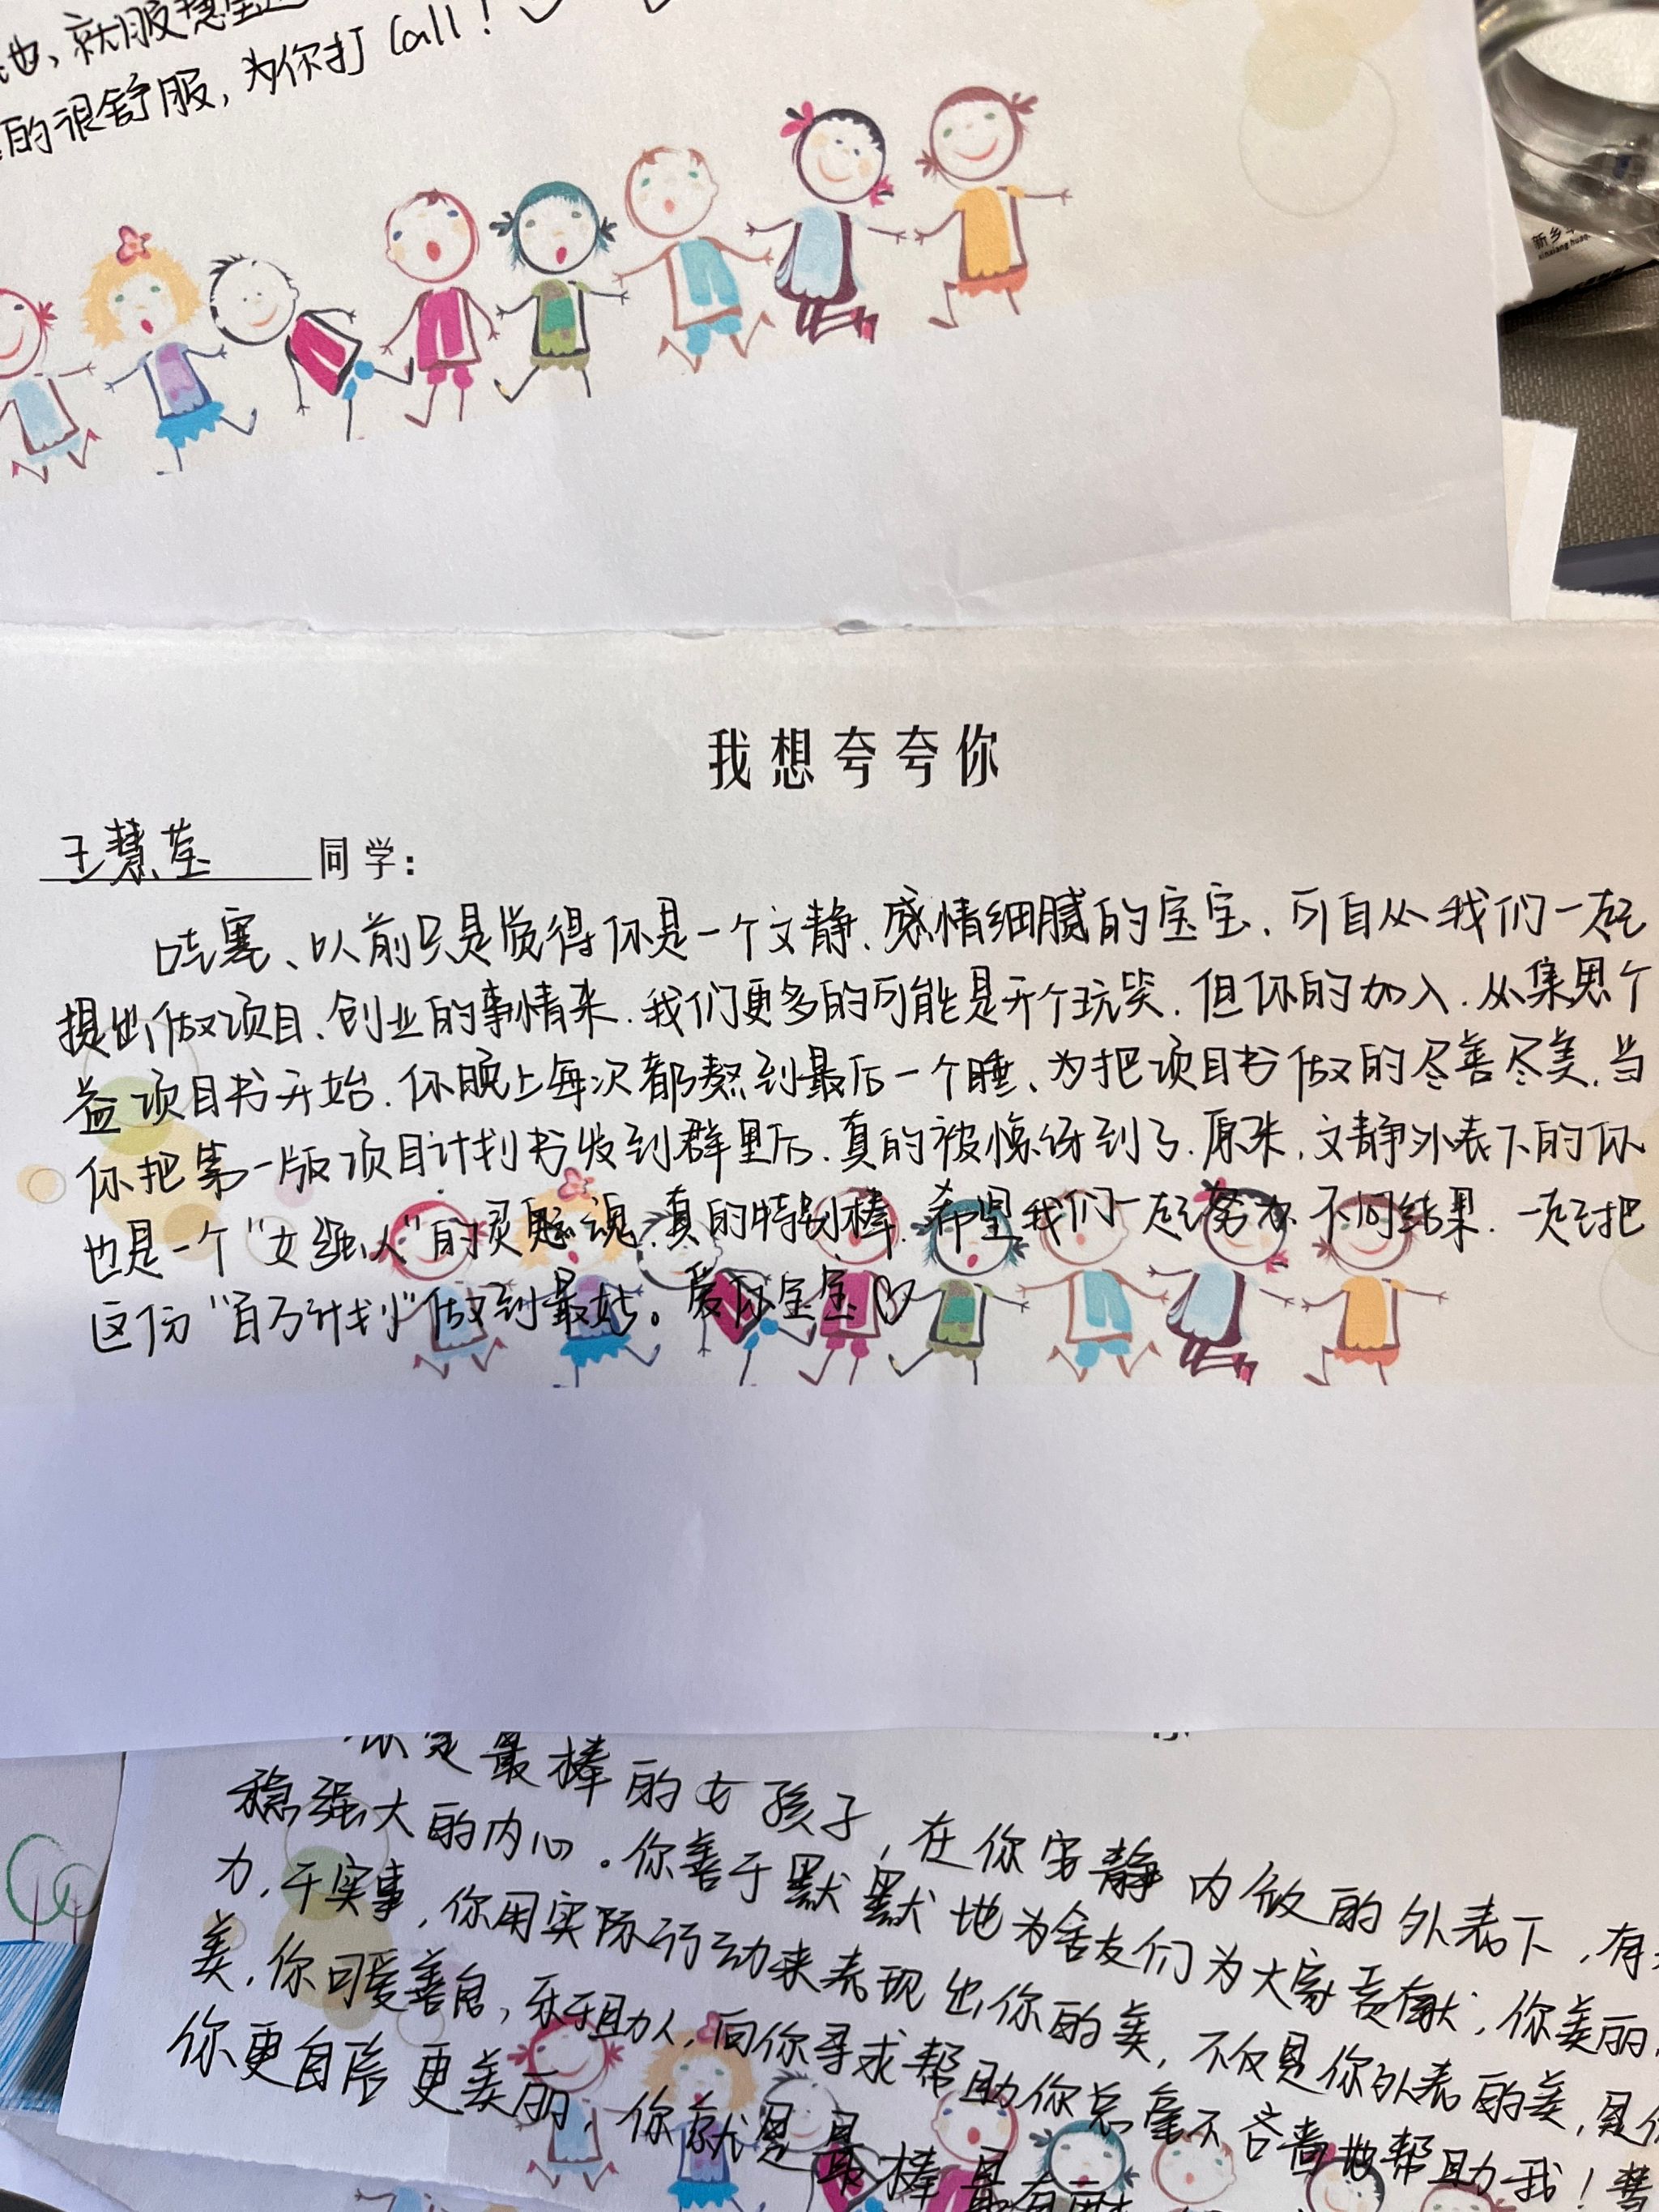 就服慧宝
的很舒服,为你打Call!
新乡
xinxiang hua
我想夸夸你
王慧莹 同学:
哇塞、以前只是觉得你是一个文静、感情细腻的宝宝、可自从我们一起
提出做项目、创业的事情来.我们更多的可能是开个玩笑.但你的加入.从集思个
益项目书开始.你晚上每次都熬到最后一个睡、为把项目书做的尽善尽美.当
你把第一版项目计划书发到群里后.真的被惊讶到了.原来,文静外表下的你
也是一个"女强人"的灵魂.真的特别棒.希望我们一起努力.不问结果.一起把
这份"百万计划"做到最好。爱你宝宝♡
你是最棒的女孩子,在你安静内敛的外表下,有
稳强大的内心。你善于默默地为舍友们为大家贡献,你美丽
力,干实事,你用实际行动来表现出你的美,不仅是你外表的美,是
美,你可爱善良,乐于助人,向你寻求帮助你总毫不吝啬地帮助我!慧
你更自信更美丽,你就是最棒最有